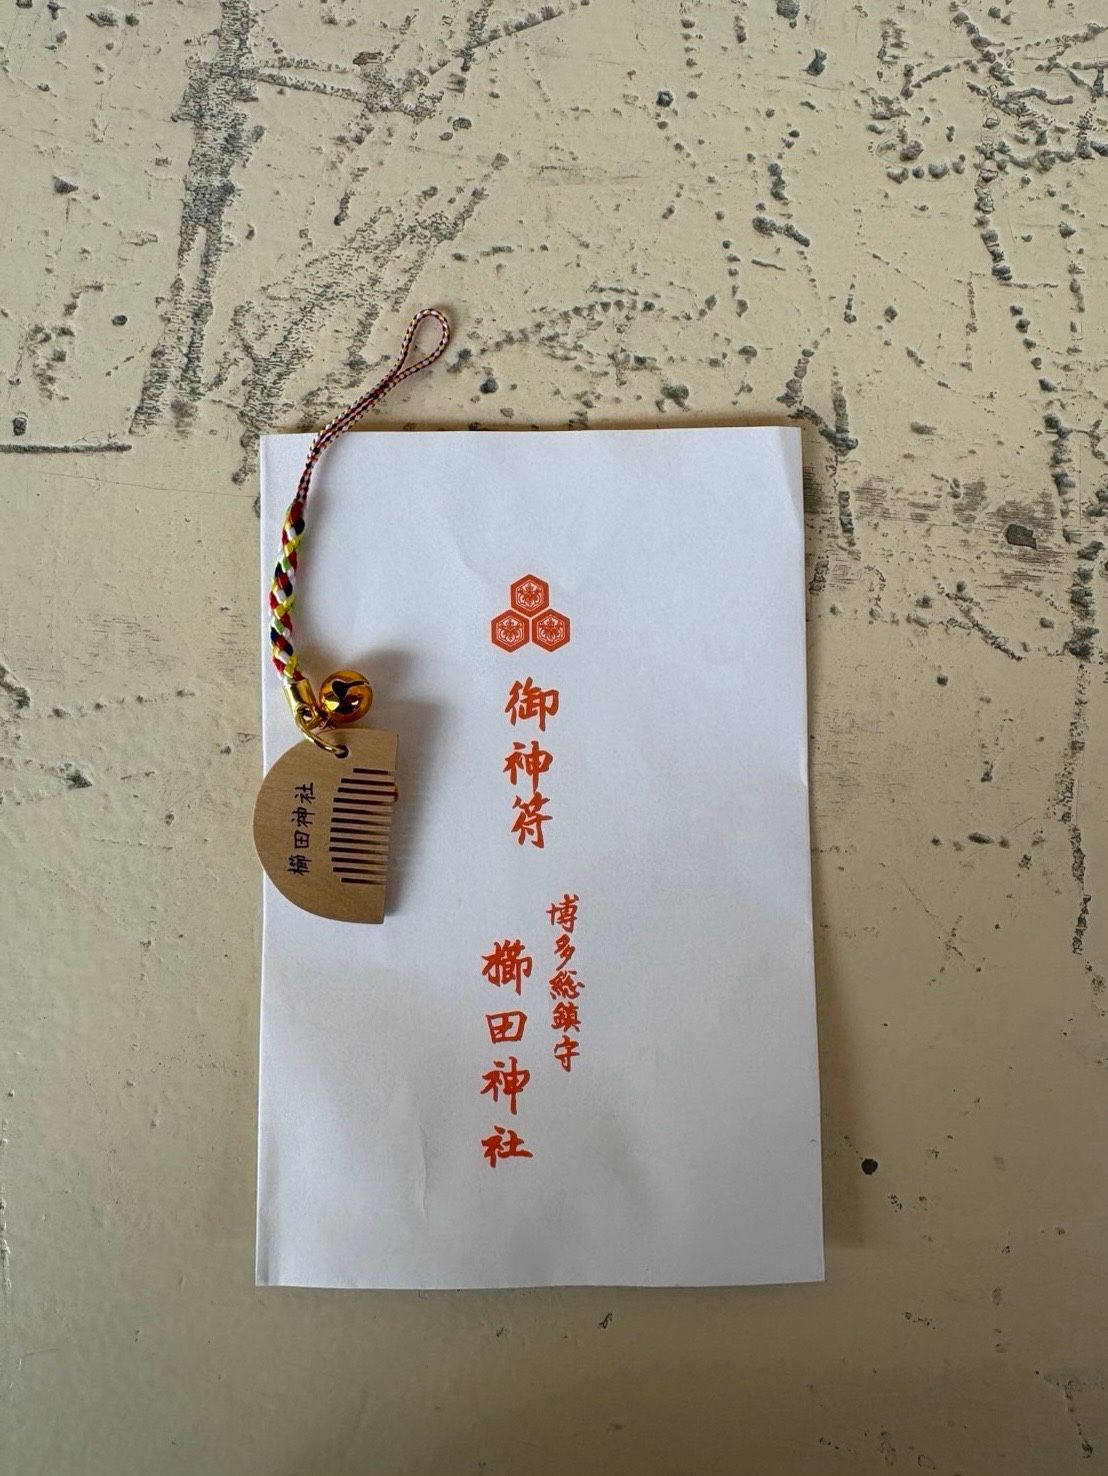 御神符
博多総鎮守
櫛田神社
櫛田神社